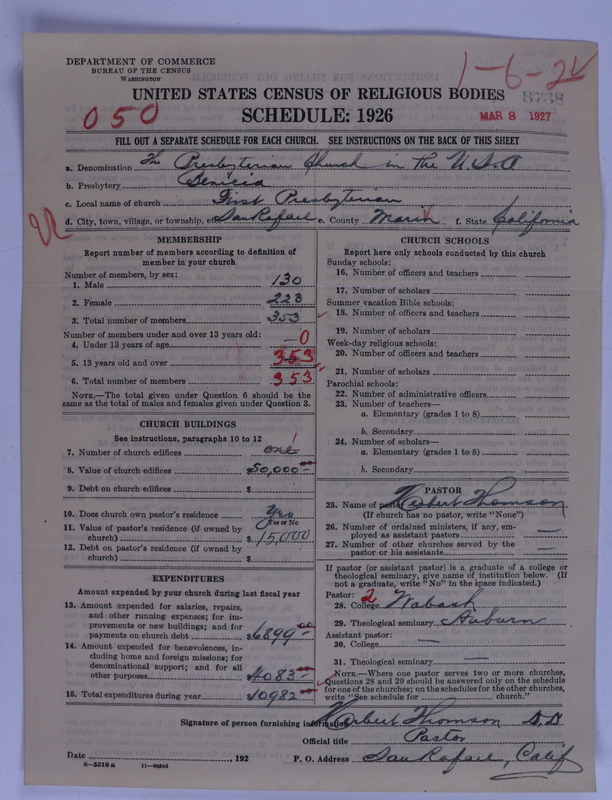 DEPARTMENT OF COMMERCE
BUREAU OF THE CENSUS
WASHINGTON
1-6-22
UNITED STATES CENSUS OF RELIGIOUS BODIES
8738
050
SCHEDULE: 1926
MAR 8 1927
FILL OUT A SEPARATE SCHEDULE FOR EACH CHURCH. SEE INSTRUCTIONS ON THE BACK OF THIS SHEET
a. Denomination The Presbyterian Church in the U.S.A
b. Presbytery Benicia
c. Local name of church First Presbyterian
d. City, town, village, or township, etc San Rafael e. County Marin f. State California
MEMBERSHIP
Report number of members according to definition of
member in your church
Number of members, by sex:
1. Male 130
2. Female 223
3. Total number of members 353
Number of members under and over 13 years old:
4. Under 13 years of age 0
5. 13 years old and over 353
6. Total number of members 353
NOTE.—The total given under Question 6 should be the
same as the total of males and females given under Question 3.
CHURCH BUILDINGS
See instructions, paragraphs 10 to 12
7. Number of church edifices one
8. Value of church edifices $50,000 00
9. Debt on church edifices $
10. Does church own pastor's residence Yes
(Yes or No
11. Value of pastor's residence (if owned by
church) $15,000
12. Debt on pastor's residence (if owned by
church) $
EXPENDITURES
Amount expended by your church during last fiscal year
13. Amount expended for salaries, repairs,
and other running expenses; for im-
provements or new buildings; and for
payments on church debt $6899
14. Amount expended for benevolences, in-
cluding home and foreign missions; for
denominational support; and for all
other purposes $4083
15. Total expenditures during year $10982
CHURCH SCHOOLS
Report here only schools conducted by this church
Sunday schools:
16. Number of officers and teachers
17. Number of scholars
Summer vacation Bible schools:
18. Number of officers and teachers
19. Number of scholars
Week-day religious schools:
20. Number of officers and teachers
21. Number of scholars
Parochial schools:
22. Number of administrative officers
23. Number of teachers—
a. Elementary (grades 1 to 8)
b. Secondary
24. Number of scholars—
a. Elementary (grades 1 to 8)
b. Secondary
PASTOR
25. Name of pastor Herbert Thomson
(If church has no pastor, write "None")
26. Number of ordained ministers, if any, em-
ployed as assistant pastors —
27. Number of other churches served by the
pastor or his assistants —
If pastor (or assistant pastor) is a graduate of a college or
theological seminary, give name of institution below. (If
not a graduate, write "No" in the space indicated.)
Pastor: 2
28. College Wabash
29. Theological seminary Auburn
Assistant pastor:
30. College —
31. Theological seminary —
NOTE.—Where one pastor serves two or more churches,
Questions 28 and 29 should be answered only on the schedule
for one of the churches; on the schedules for the other churches,
write "See schedule for church."
Signature of person furnishing information Herbert Thomson D.D
Official title Pastor
Date , 192 P. O. Address San Rafael, Calif
8-5518 a